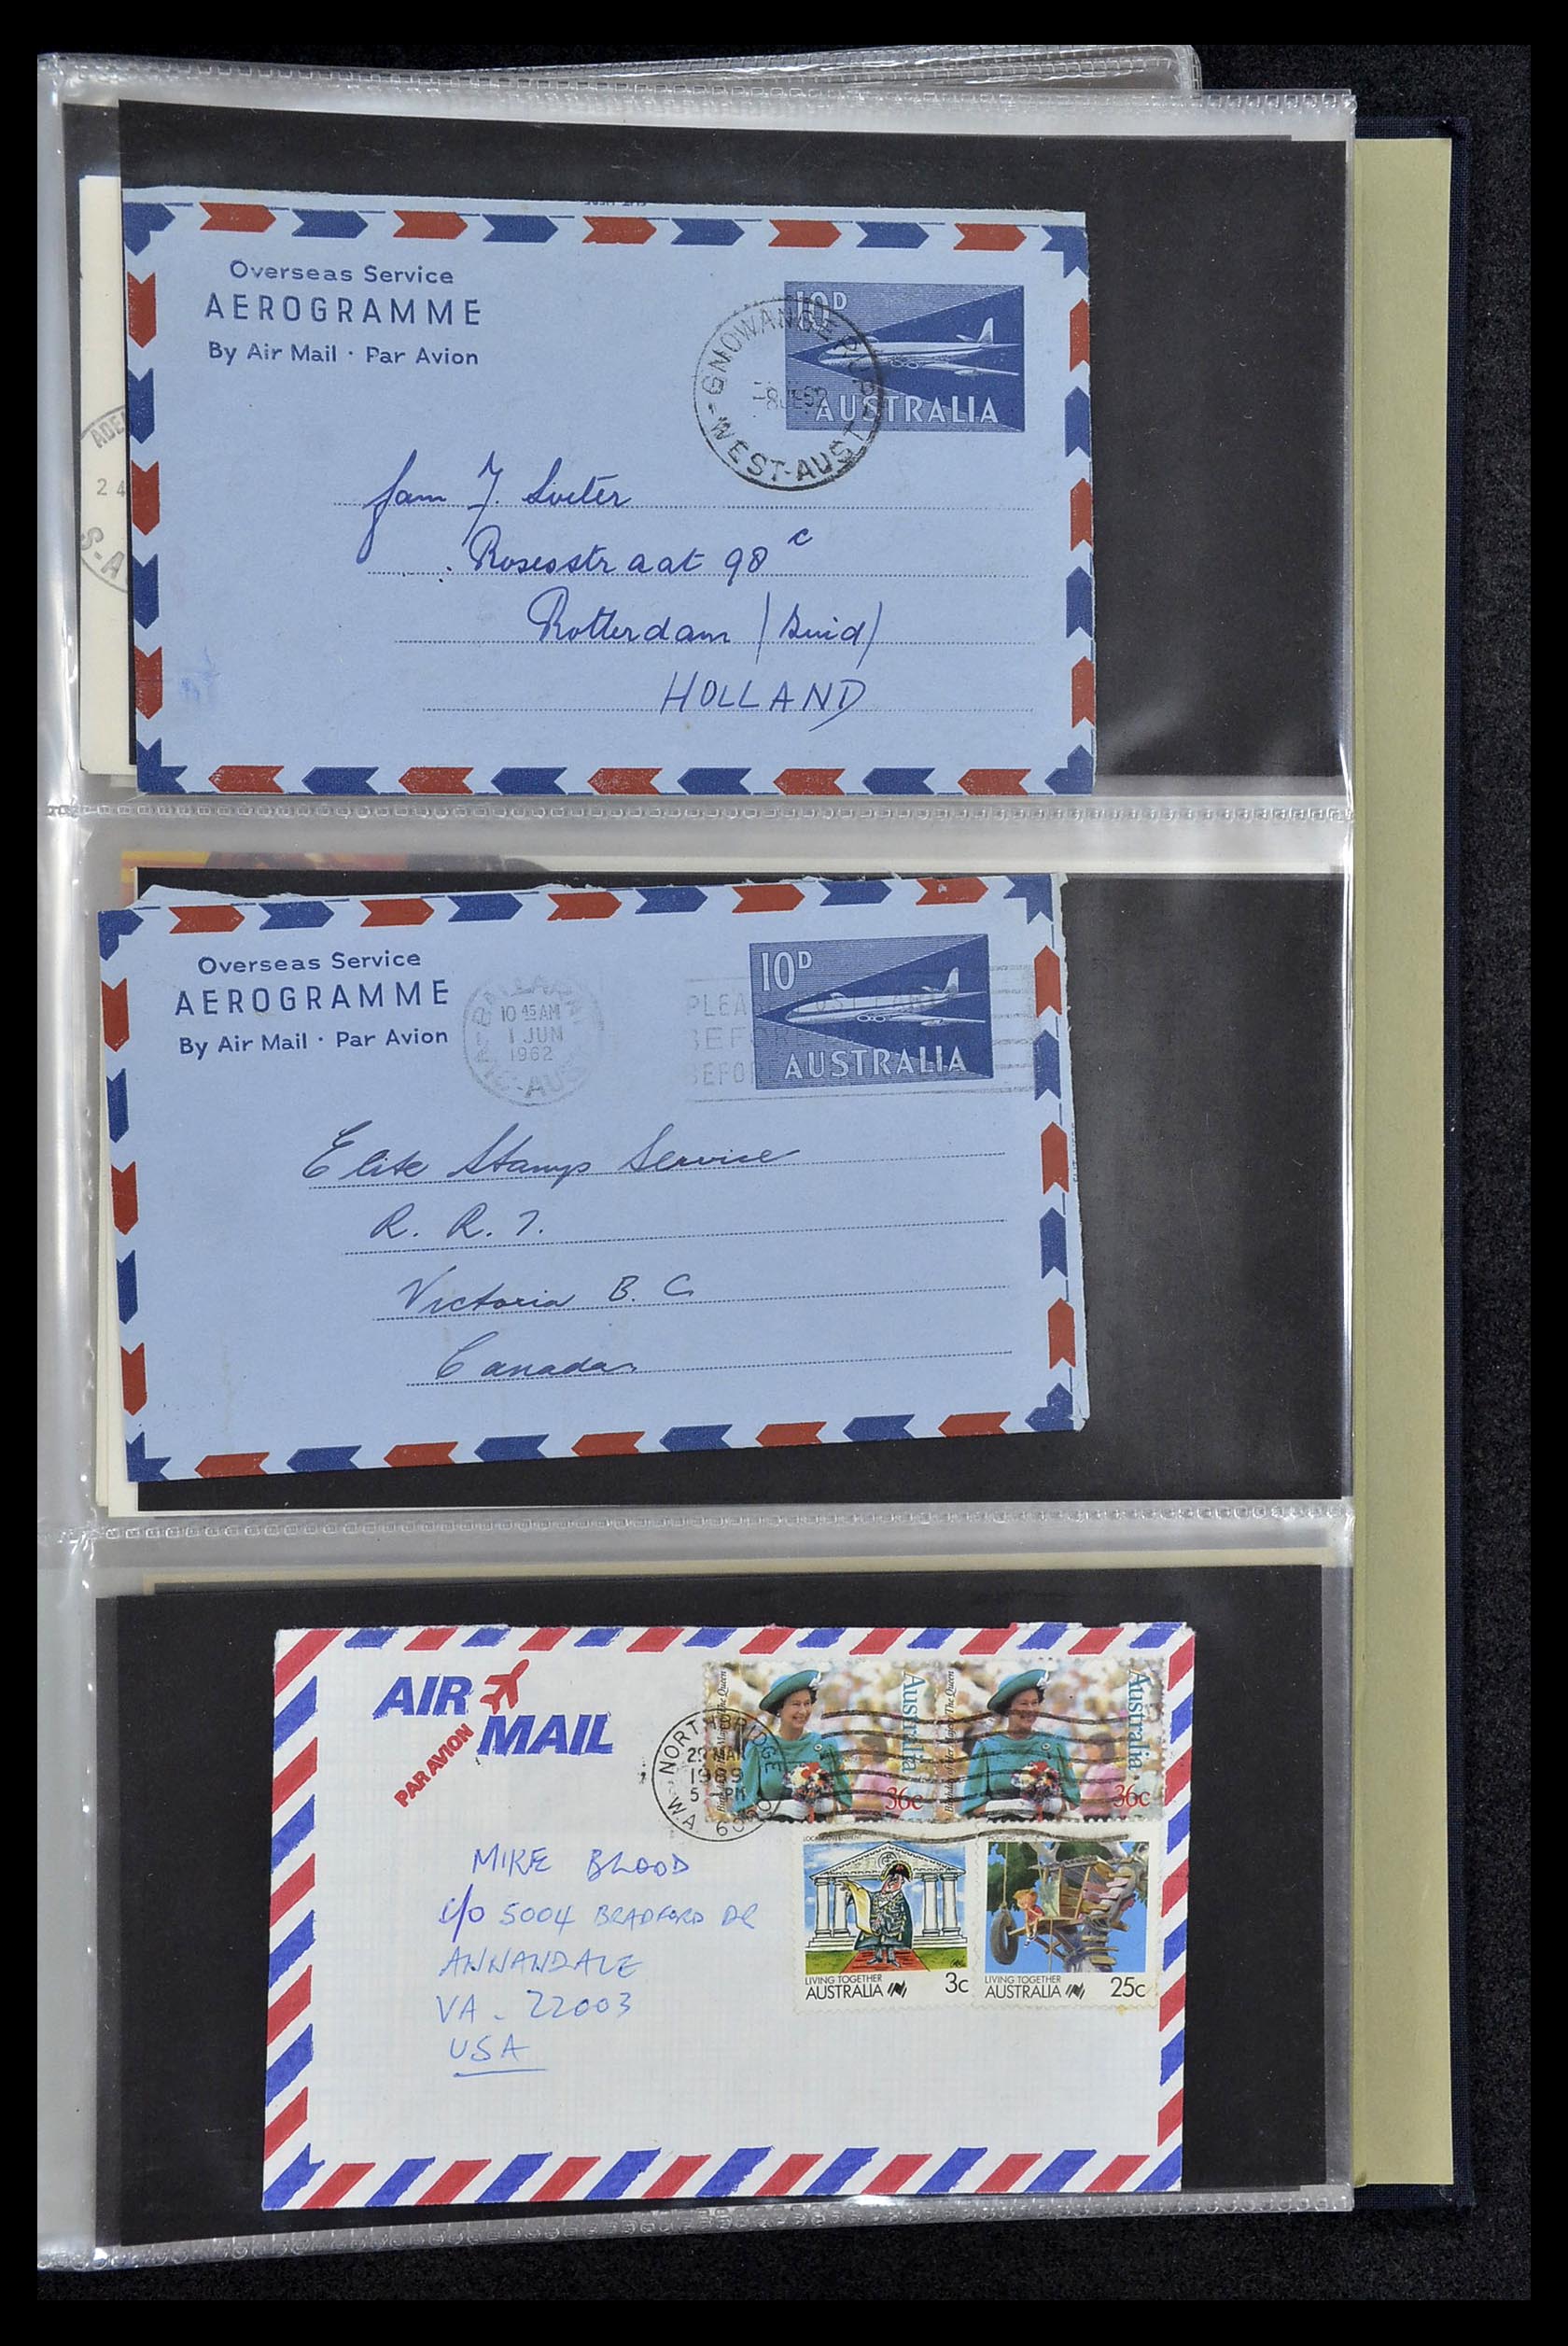 Overseas Service
AEROGRAMME
By Air Mail · Par Avion
10D
AUSTRALIA
GNOWANGERUP
WEST-AUST
fam J.
98 c
Rotterdam
HOLLAND
ADE
24
S-A
Overseas Service
AEROGRAMME
By Air Mail · Par Avion
10 45 AM
1 JUN
1962
VIC-AUST
PLEA
BEF
BEFO
10D
AUSTRALIA
Elite Stamps Service
R. R. 7.
Victoria B. C.
Canada
AIR
MAIL
PAR AVION
NORTHBRIDGE
29 MAR
1989
5 PM
W.A.
Australia
36c
Australia
Birthday of Her Majesty The Queen
36c
MIKE BLOOD
c/o 5004 BRADFORD DR
ANNANDALE
VA. 22003
USA
LIVING TOGETHER
AUSTRALIA
3c
LIVING TOGETHER
AUSTRALIA
25c